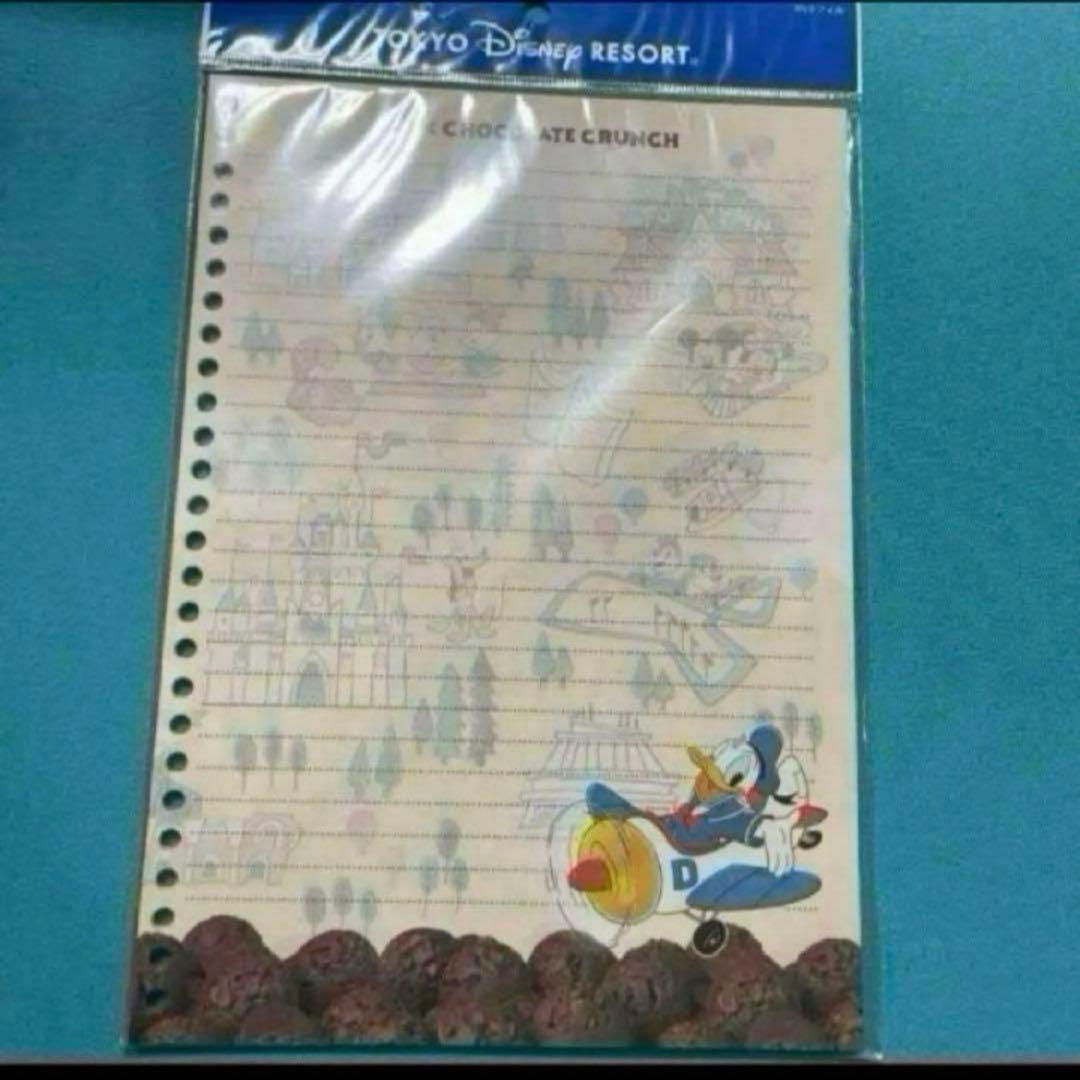 TOKYO Disney RESORT
CHOCOLATE CRUNCH
D